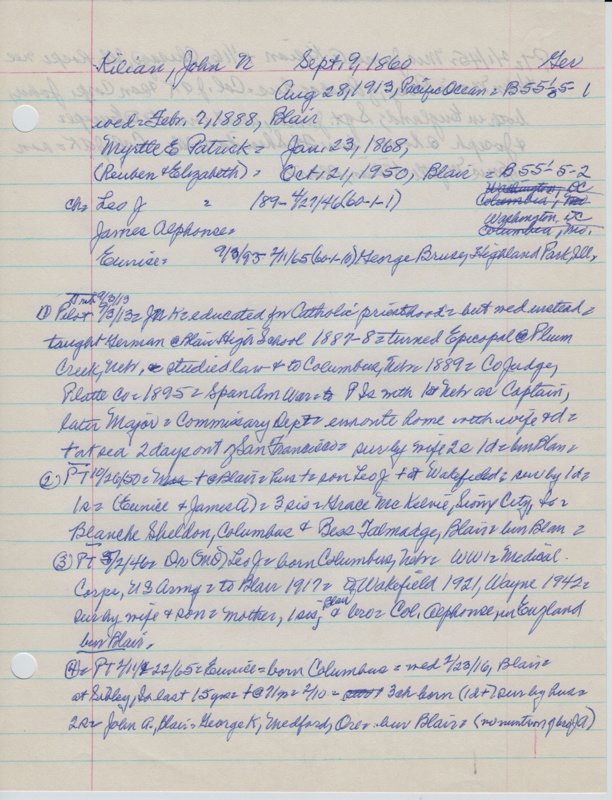 Kilian, John N Sept 9, 1860 Ger
Aug 28, 1913, Pacific Ocean = B55-5-1
wed = Febr. 7, 1888, Blair
Myrtle E Patrick = Jan. 23, 1868,
(Reuben & Elizabeth) = Oct 21, 1950, Blair = B55-5-2
ch = Leo J = 189- 4/27/46 (60-1-1) Washington, DC
Columbia,
James Alphonse = Washington, DC
Columbia, Mo.
Eunise = 9/3/93 2/11/65 (60-1-10) George Bruse, Highland Park, Ill.
9/3/13
1) Pilot 9/3/13 = J N K = educated for Catholic priesthood = but wed instead =
taught German @ Blair High School 1887-8 = turned Episcopal @ Plum
Creek, Nebr. studied law & to Columbus, Nebr 1889 = Co Judge,
Platte Co = 1895 = Span Am War = to P Is with 1st Nebr as Captain,
later Major = Commissary Dept = enroute home with wife & d =
t at sea 2 days out of San Francisco = sur by wife 2s 1d = bur Blair =
2) PT 10/26/50 = t @ Blair = hus t = son Leo J t @ Wakefield = sur by 1d =
1s = (Eunice & James A) = 3 sis = Grace McKilvie, Sioux City, Ia =
Blanche Sheldon, Columbus & Bess Talmadge, Blair = bur Blair =
3) PT 5/2/46 = Dr (OMD) Leo J = born Columbus, Nebr = WW1 = Medical
Corps, US Army = to Blair 1917 = to Wakefield 1921, Wayne 1942 =
sur by wife & son = mother, 1 sis, Blair & bro = Col. Alphonse, in England
bur Blair.
4) = PT 2/11 & 22/65 = Eunice = born Columbus = wed 2/23/16, Blair =
at Sibley, Ia last 15 yrs = t @ 71 = 2/10 = 3 ch born (1d t) sur by hus =
2s = John A., Blair = George K, Medford, Ore = bur Blair = (no mention of bro J A)